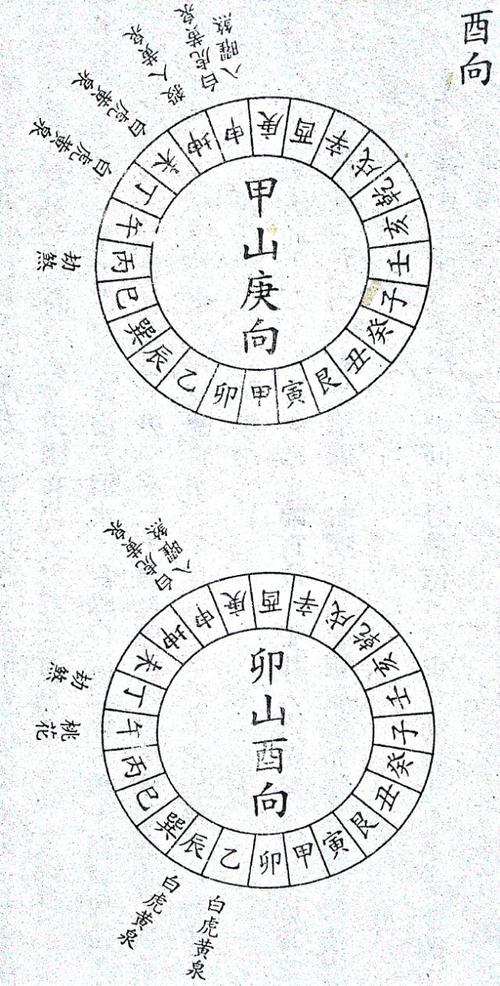 酉向
八曜煞
白虎黄泉
殺人黄泉
白虎黄泉
白虎黄泉
劫煞
庚酉辛戌乾亥壬子癸丑艮寅甲卯乙辰巽巳丙午丁未坤申
甲山庚向
八曜煞
白虎黄泉
劫煞
桃花
酉辛戌乾亥壬子癸丑艮寅甲卯乙辰巽巳丙午丁未坤申庚
卯山酉向
白虎黄泉
白虎黄泉